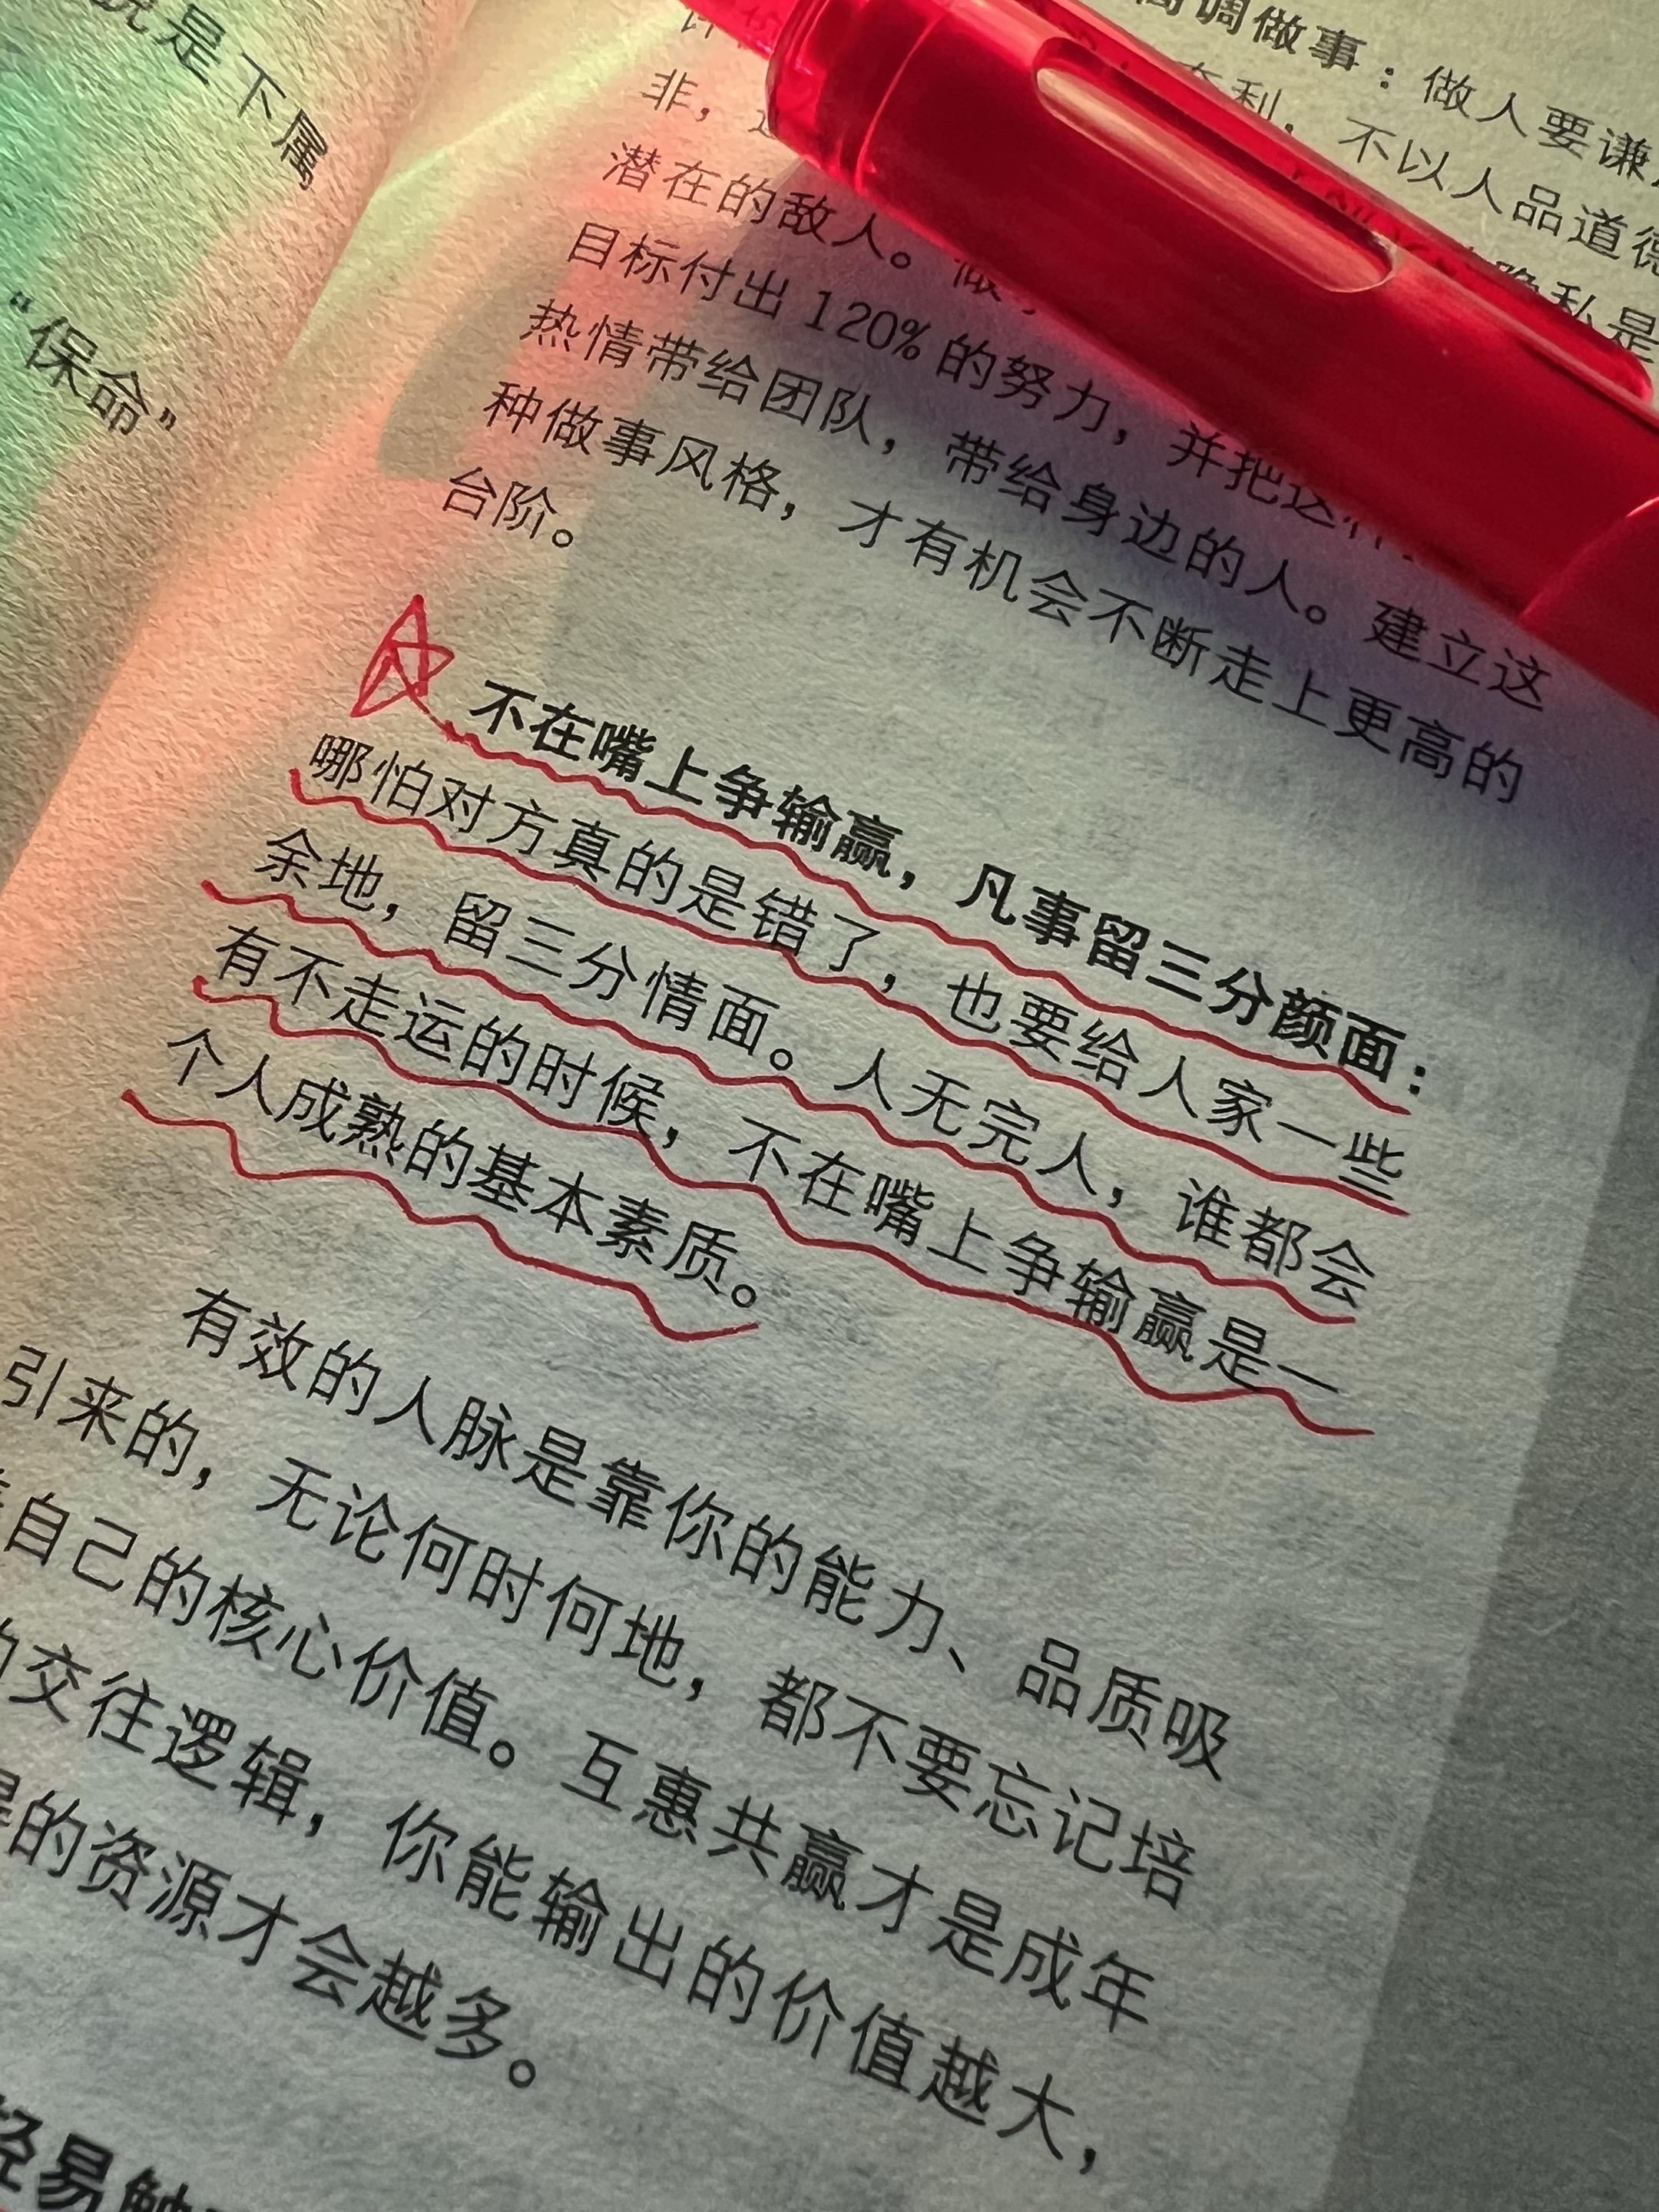 是下属
“保命”
高调做事：做人要谦
不以人品道德
隐私是
非，
潜在的敌人。做
目标付出 120% 的努力，并把这
热情带给团队，带给身边的人。建立这
种做事风格，才有机会不断走上更高的
台阶。
不在嘴上争输赢，凡事留三分颜面：
哪怕对方真的是错了，也要给人家一些
余地，留三分情面。人无完人，谁都会
有不走运的时候，不在嘴上争输赢是一
个人成熟的基本素质。
有效的人脉是靠你的能力、品质吸
引来的，无论何时何地，都不要忘记培
自己的核心价值。互惠共赢才是成年
的交往逻辑，你能输出的价值越大，
的资源才会越多。
轻易触